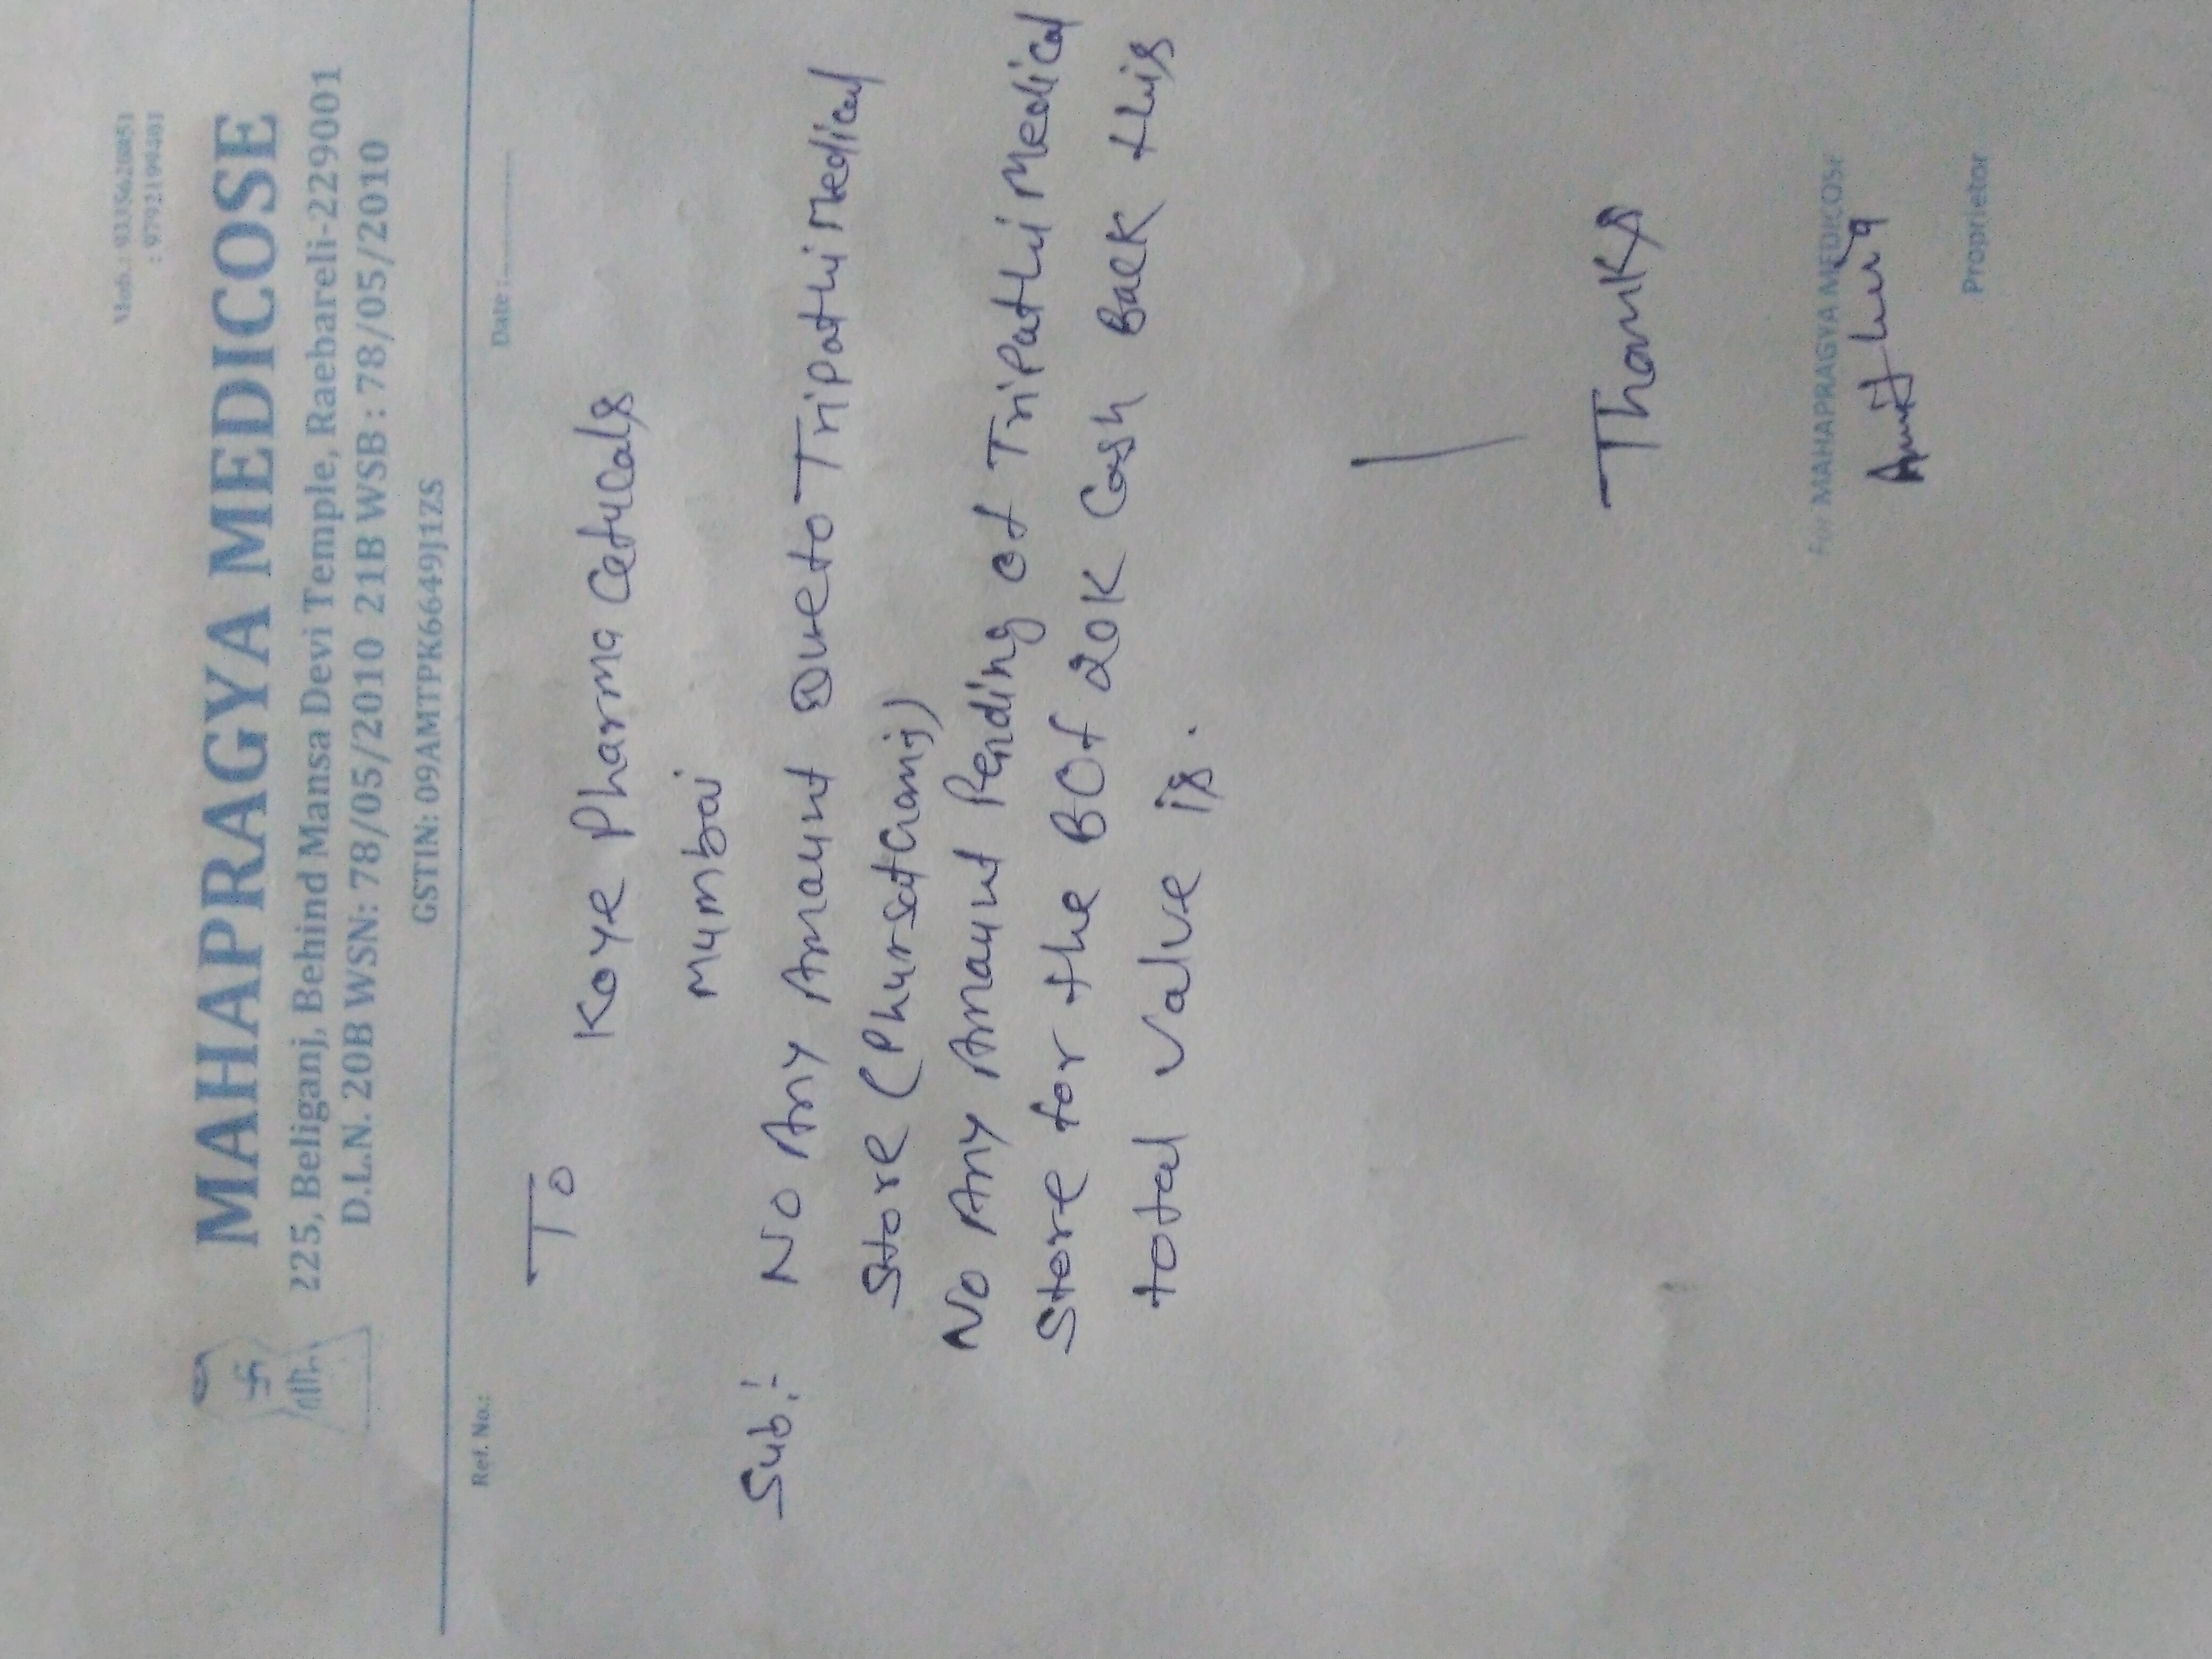 Mob.: 9335620851
: 9792199401
MAHAPRAGYA MEDICOSE
225, Beliganj, Behind Mansa Devi Temple, Raebareli-229001
D.L.N. 20B WSN: 78/05/2010 21B WSB : 78/05/2010
GSTIN: 09AMTPK6649J1ZS
Ref. No.:
Date :
To
Koye Pharma Ceuticals
Mumbai
Sub:- No Any Amaunt Due to Tripathi Medical
Store (Phursatganj)
No Any Amaunt Pending of Tripathi Medical
Store for the BOf 20K Cash Back this
total value is.
Thanks
For MAHAPRAGYA MEDICOSE
Proprietor